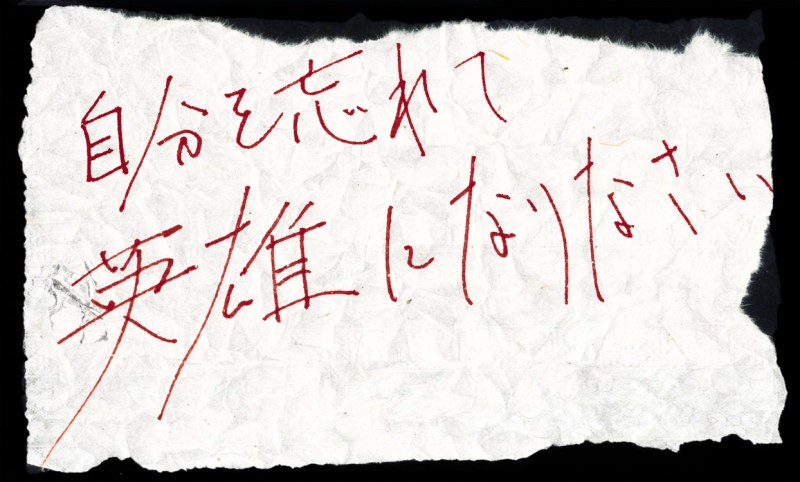 自分を忘れて
英雄になりなさい